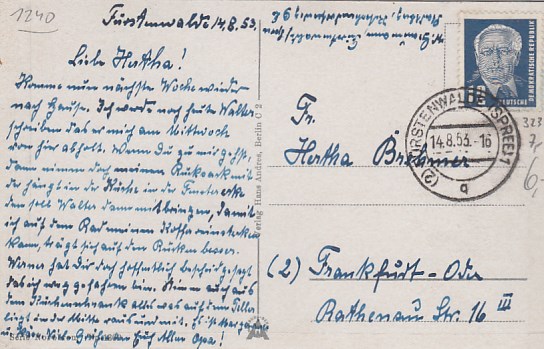 1240
Fürstenwalde 14.8.53.
Liebe Hertha!
Komme nun nächste Woche wieder
nach Hause. Ich werde noch heute Walter
schreiben das er mich am Mittwoch
von hier abholt. Wenn du zu mir gehst,
dann nimm doch meinen Rucksack mit
der hängt in der Küche in der Fensterecke
den soll Walter dann mitbringen, damit
ich auf dem Rad meinen Koffer
kann, trägt sich auf den Rücken besser.
Werner hat dir doch hoffentlich bescheid gesagt
das ich weg gefahren bin. Nimm auch aus
dem Küchenschrank alles was auf dem Teller
liegt in der Mitte raus und mit. Es ist
u. Viele Grüße an Euch Allen Opa!
Verlag Hans Andres, Berlin C 2
DEUTSCHE
DEMOKRATISCHE REPUBLIK
FÜRSTENWALDE (SPREE) 1
14.8.53.-16
(2)
q
323
7,-
6,-
Fr.
Hertha Brehmer
(2) Frankfurt-Oder
Rathenau Str. 16 III